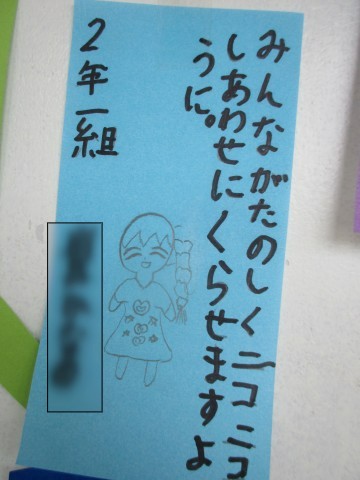 みんながたのしくニコニコ
しあわせにくらせますよ
うに。
2年一組